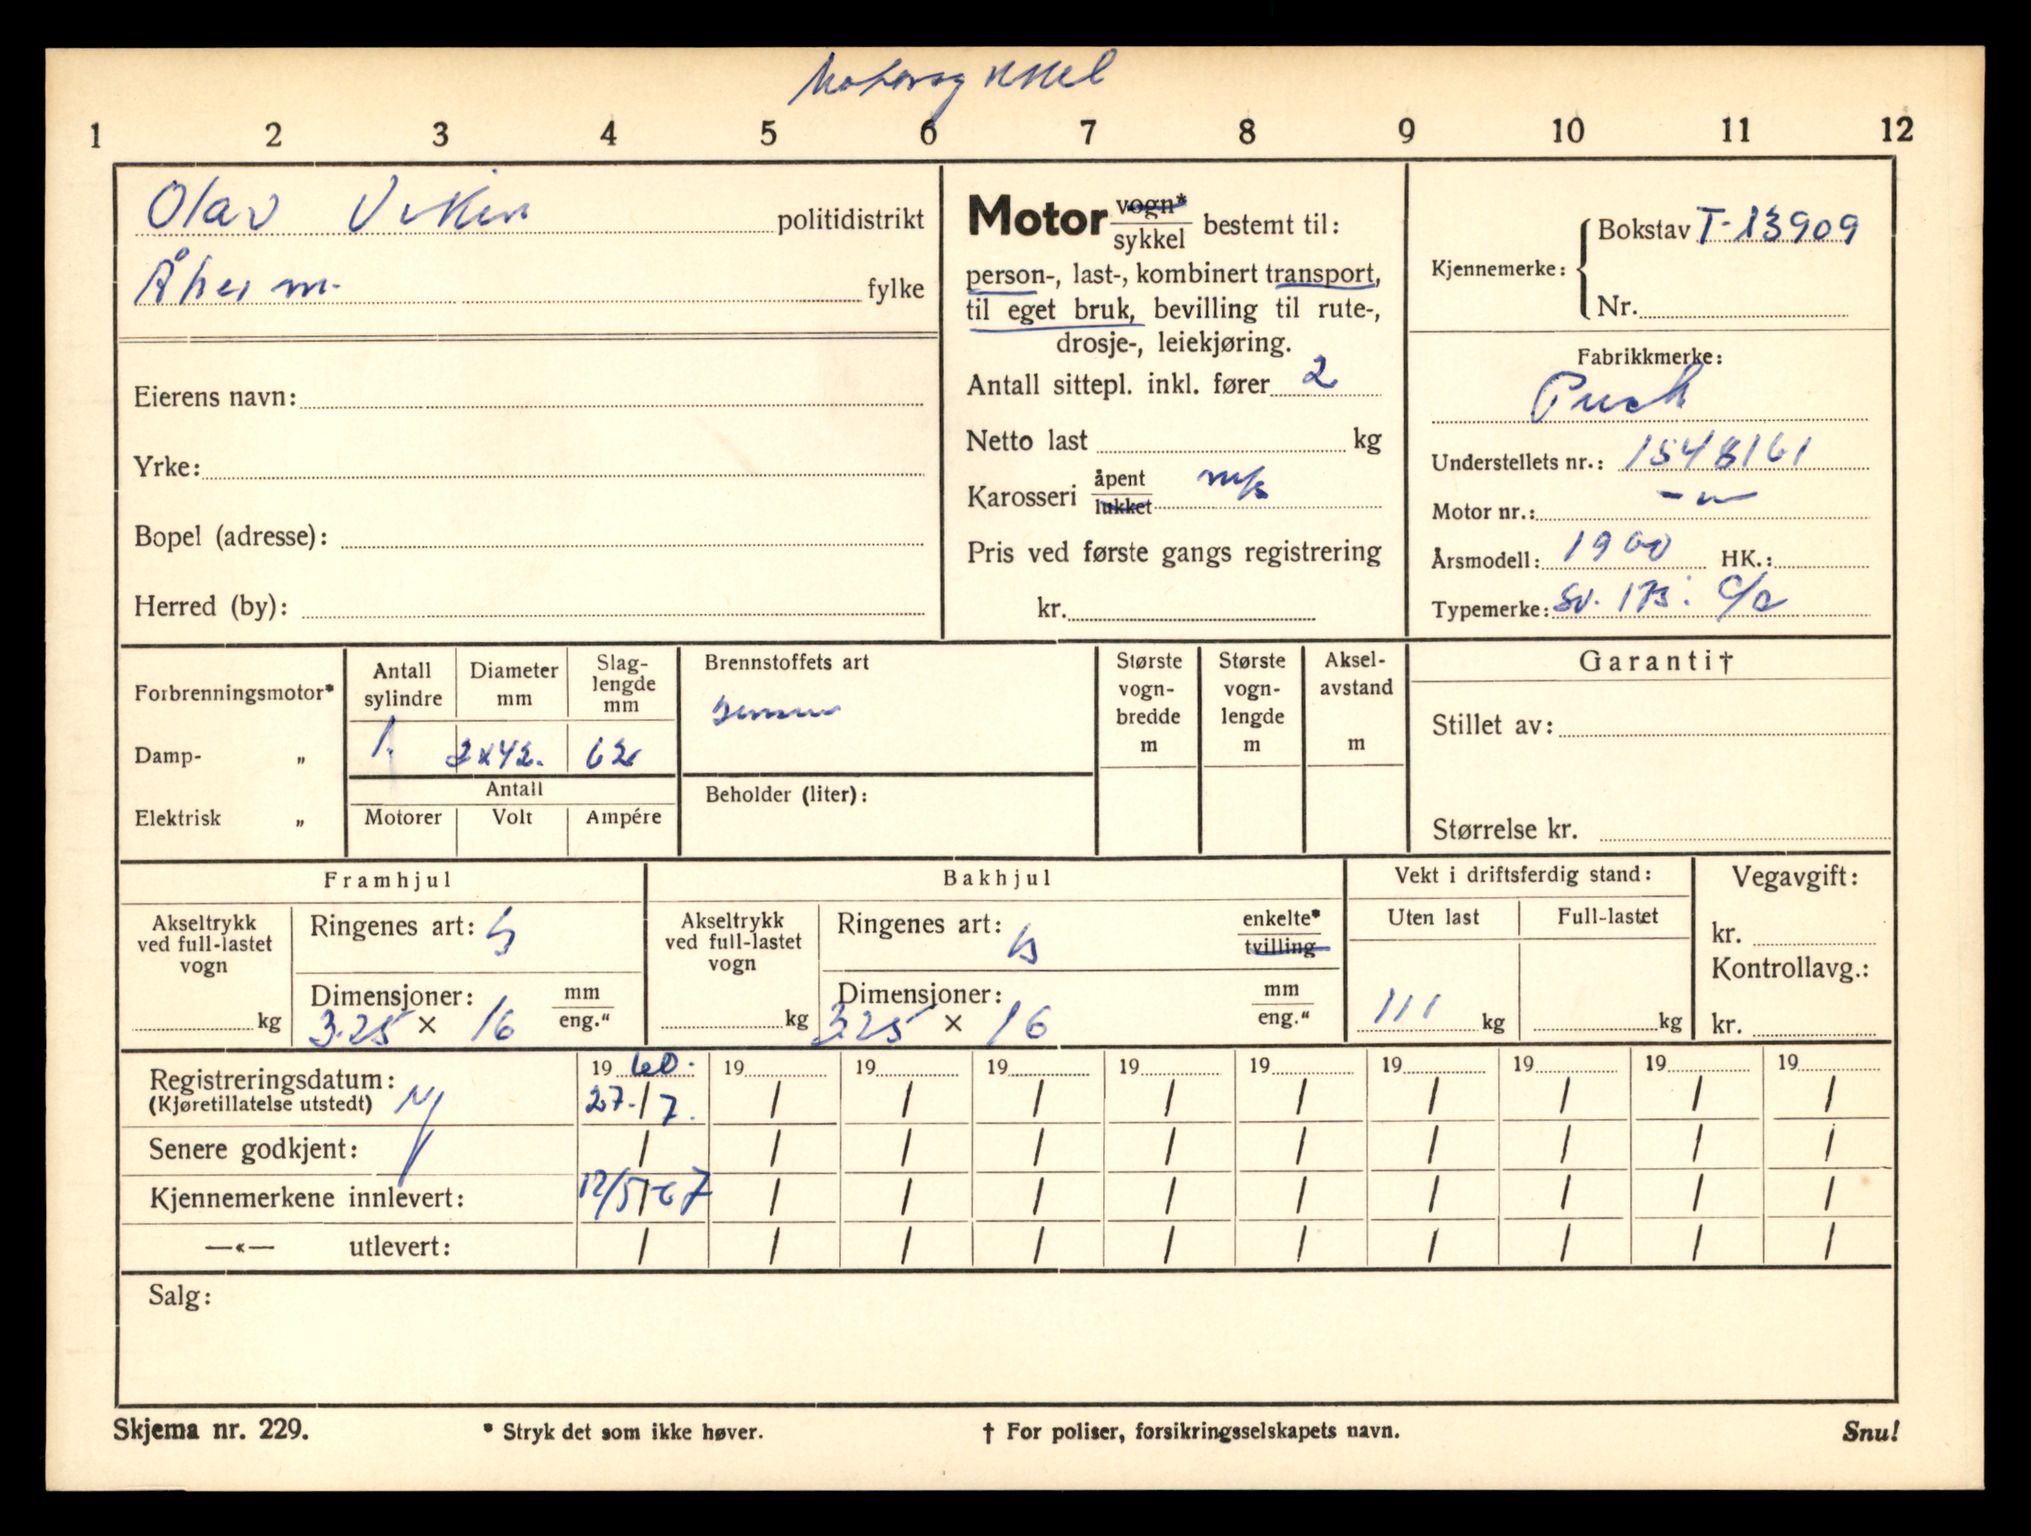 Motorsykkel
1 2 3 4 5 6 7 8 9 10 11 12
Olav Viken politidistrikt
Åheim fylke
Eierens navn:
Yrke:
Bopel (adresse):
Herred (by):
Motor vogn* sykkel bestemt til:
person-, last-, kombinert transport,
til eget bruk, bevilling til rute-,
drosje-, leiekjøring.
Antall sittepl. inkl. fører 2
Netto last kg
Karosseri åpent lukket m/s
Pris ved første gangs registrering
kr.
Kjennemerke: Bokstav T-13909
Nr.
Fabrikkmerke:
Puch
Understellets nr.: 1548161
Motor nr.: - " -
Årsmodell: 1960 HK.:
Typemerke: Sv. 175.
Forbrenningsmotor*
Damp- „
Elektrisk „
Antall sylindre
1
Diameter mm
2x42.
Slag-lengde mm
62
Antall
Motorer Volt Ampére
Brennstoffets art
Beholder (liter):
Største vogn-bredde m
Største vogn-lengde m
Aksel-avstand m
Garanti†
Stillet av:
Størrelse kr.
Framhjul
Akseltrykk ved full-lastet vogn
kg
Ringenes art:
Dimensjoner: mm eng."
3.25 × 16
Bakhjul
Akseltrykk ved full-lastet vogn
kg
Ringenes art: enkelte* tvilling
Dimensjoner: mm eng."
3.25 × 16
Vekt i driftsferdig stand:
Uten last Full-lastet
111 kg kg
Vegavgift:
kr.
Kontrollavg.:
kr.
19 60. 19 19 19 19 19 19 19 19 19
Registreringsdatum:
(Kjøretillatelse utstedt) Ny 27. / 7. / / / / / / / / /
Senere godkjent: / / / / / / / / / /
Kjennemerkene innlevert: 12/5-67 / / / / / / / / /
—«— utlevert: / / / / / / / / / /
Salg:
Skjema nr. 229. * Stryk det som ikke høver. † For poliser, forsikringsselskapets navn. Snu!